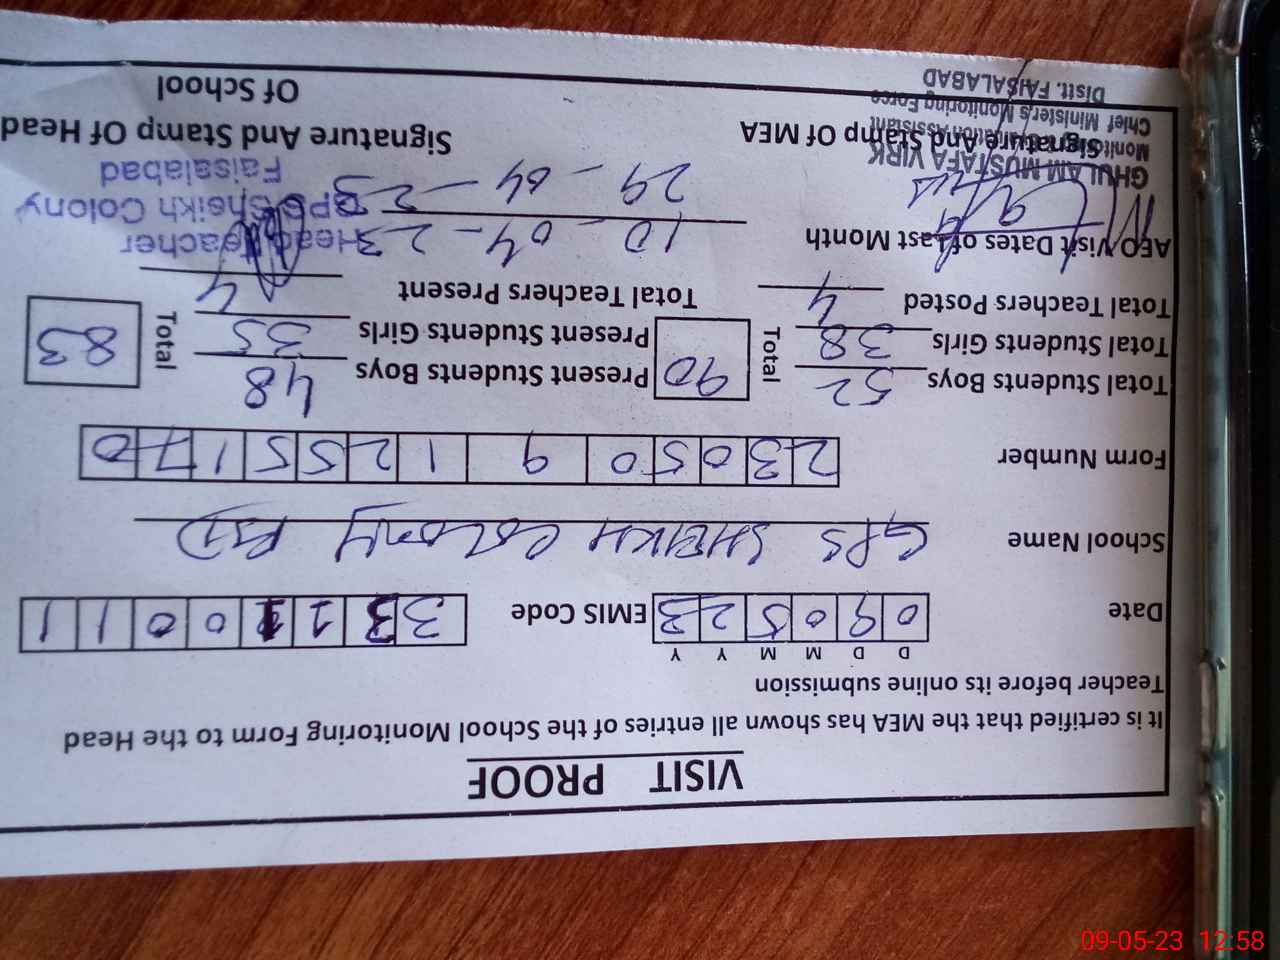 VISIT PROOF
It is certified that the MEA has shown all entries of the School Monitoring Form to the Head
Teacher before its online submission
D D M M Y Y
Date 0 9 0 5 2 3 EMIS Code 3 3 1 1 1 0 0 1 1
School Name GPS SHEIKH COLONY FSD
Form Number 2 3 0 5 0 9 1 2 5 5 1 7 0
Total Students Boys 52 Present Students Boys 48
Total Students Girls 38 Total 90 Present Students Girls 35 Total 83
Total Teachers Posted 4 Total Teachers Present 4
AEO Visit Dates of Last Month 10-04-23
Head Teacher
29-04-23
GPS Sheikh Colony
Faisalabad
GHULAM MUSTAFA VIRK
Signature And Stamp Of MEA Signature And Stamp Of Head
Of School
Assistant
Chief Minister's Monitoring Force
Distt. FAISALABAD
09-05-23 12:58